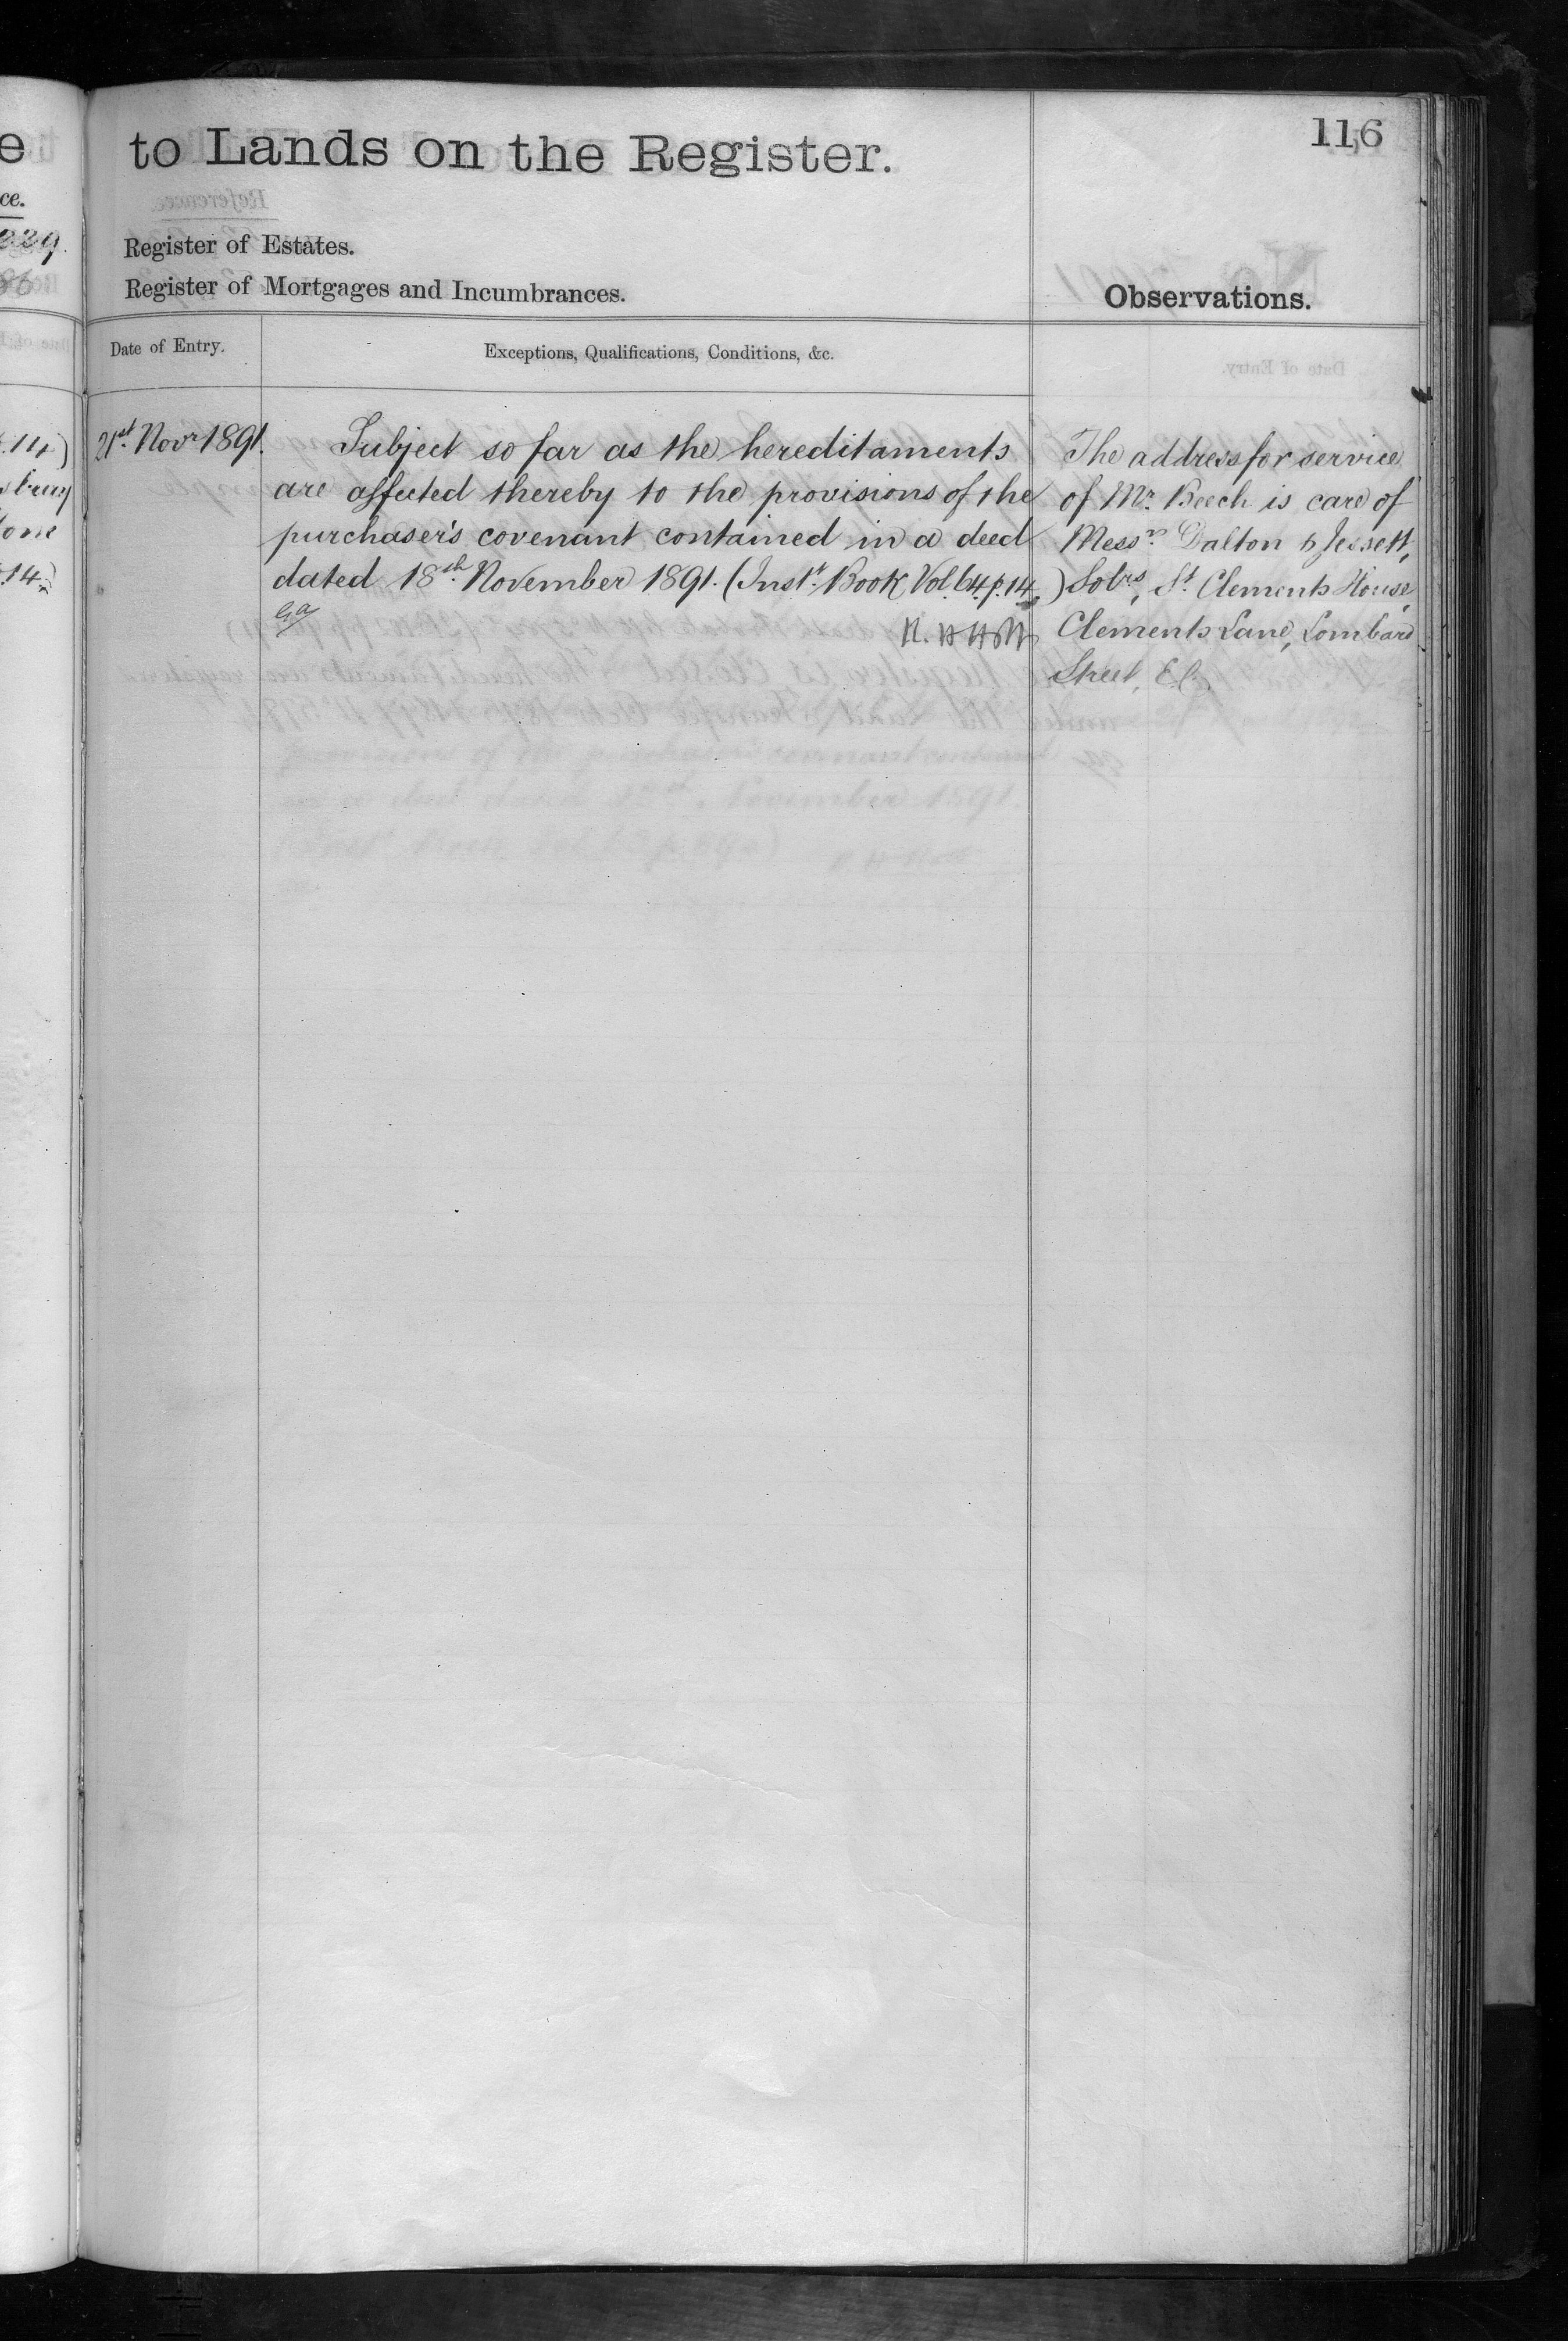 116
to Lands on the Register.
Register of Estates.
Register of Mortgages and Incumbrances.
Observations.
Date of Entry.
Exceptions, Qualifications, Conditions, &c.
21st Novr 1891.
Subject so far as the hereditaments
are affected thereby to the provisions of the
purchaser's covenant contained in a deed
dated 18th November 1891. (Instt. Book Vol. 64 p. 14.)
The address for service
of Mr. Beech is care of
Messrs Dalton & Jessett,
Solrs, St. Clements House,
Clements Lane, Lombard
Street, E.C.